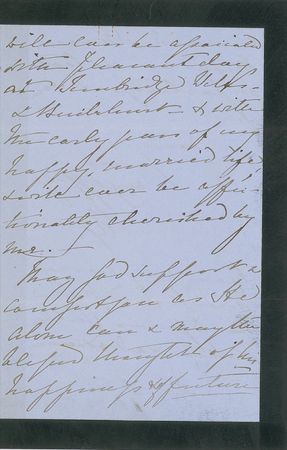 will ever be associated
with pleasant days
at Tunbridge Wells
& &  with
the early years of my
happy, married life,
will ever be affec-
tionately cherished by
me. —
May God support &
comfort you as He
alone can & may the
blessed thought of his
happiness & future